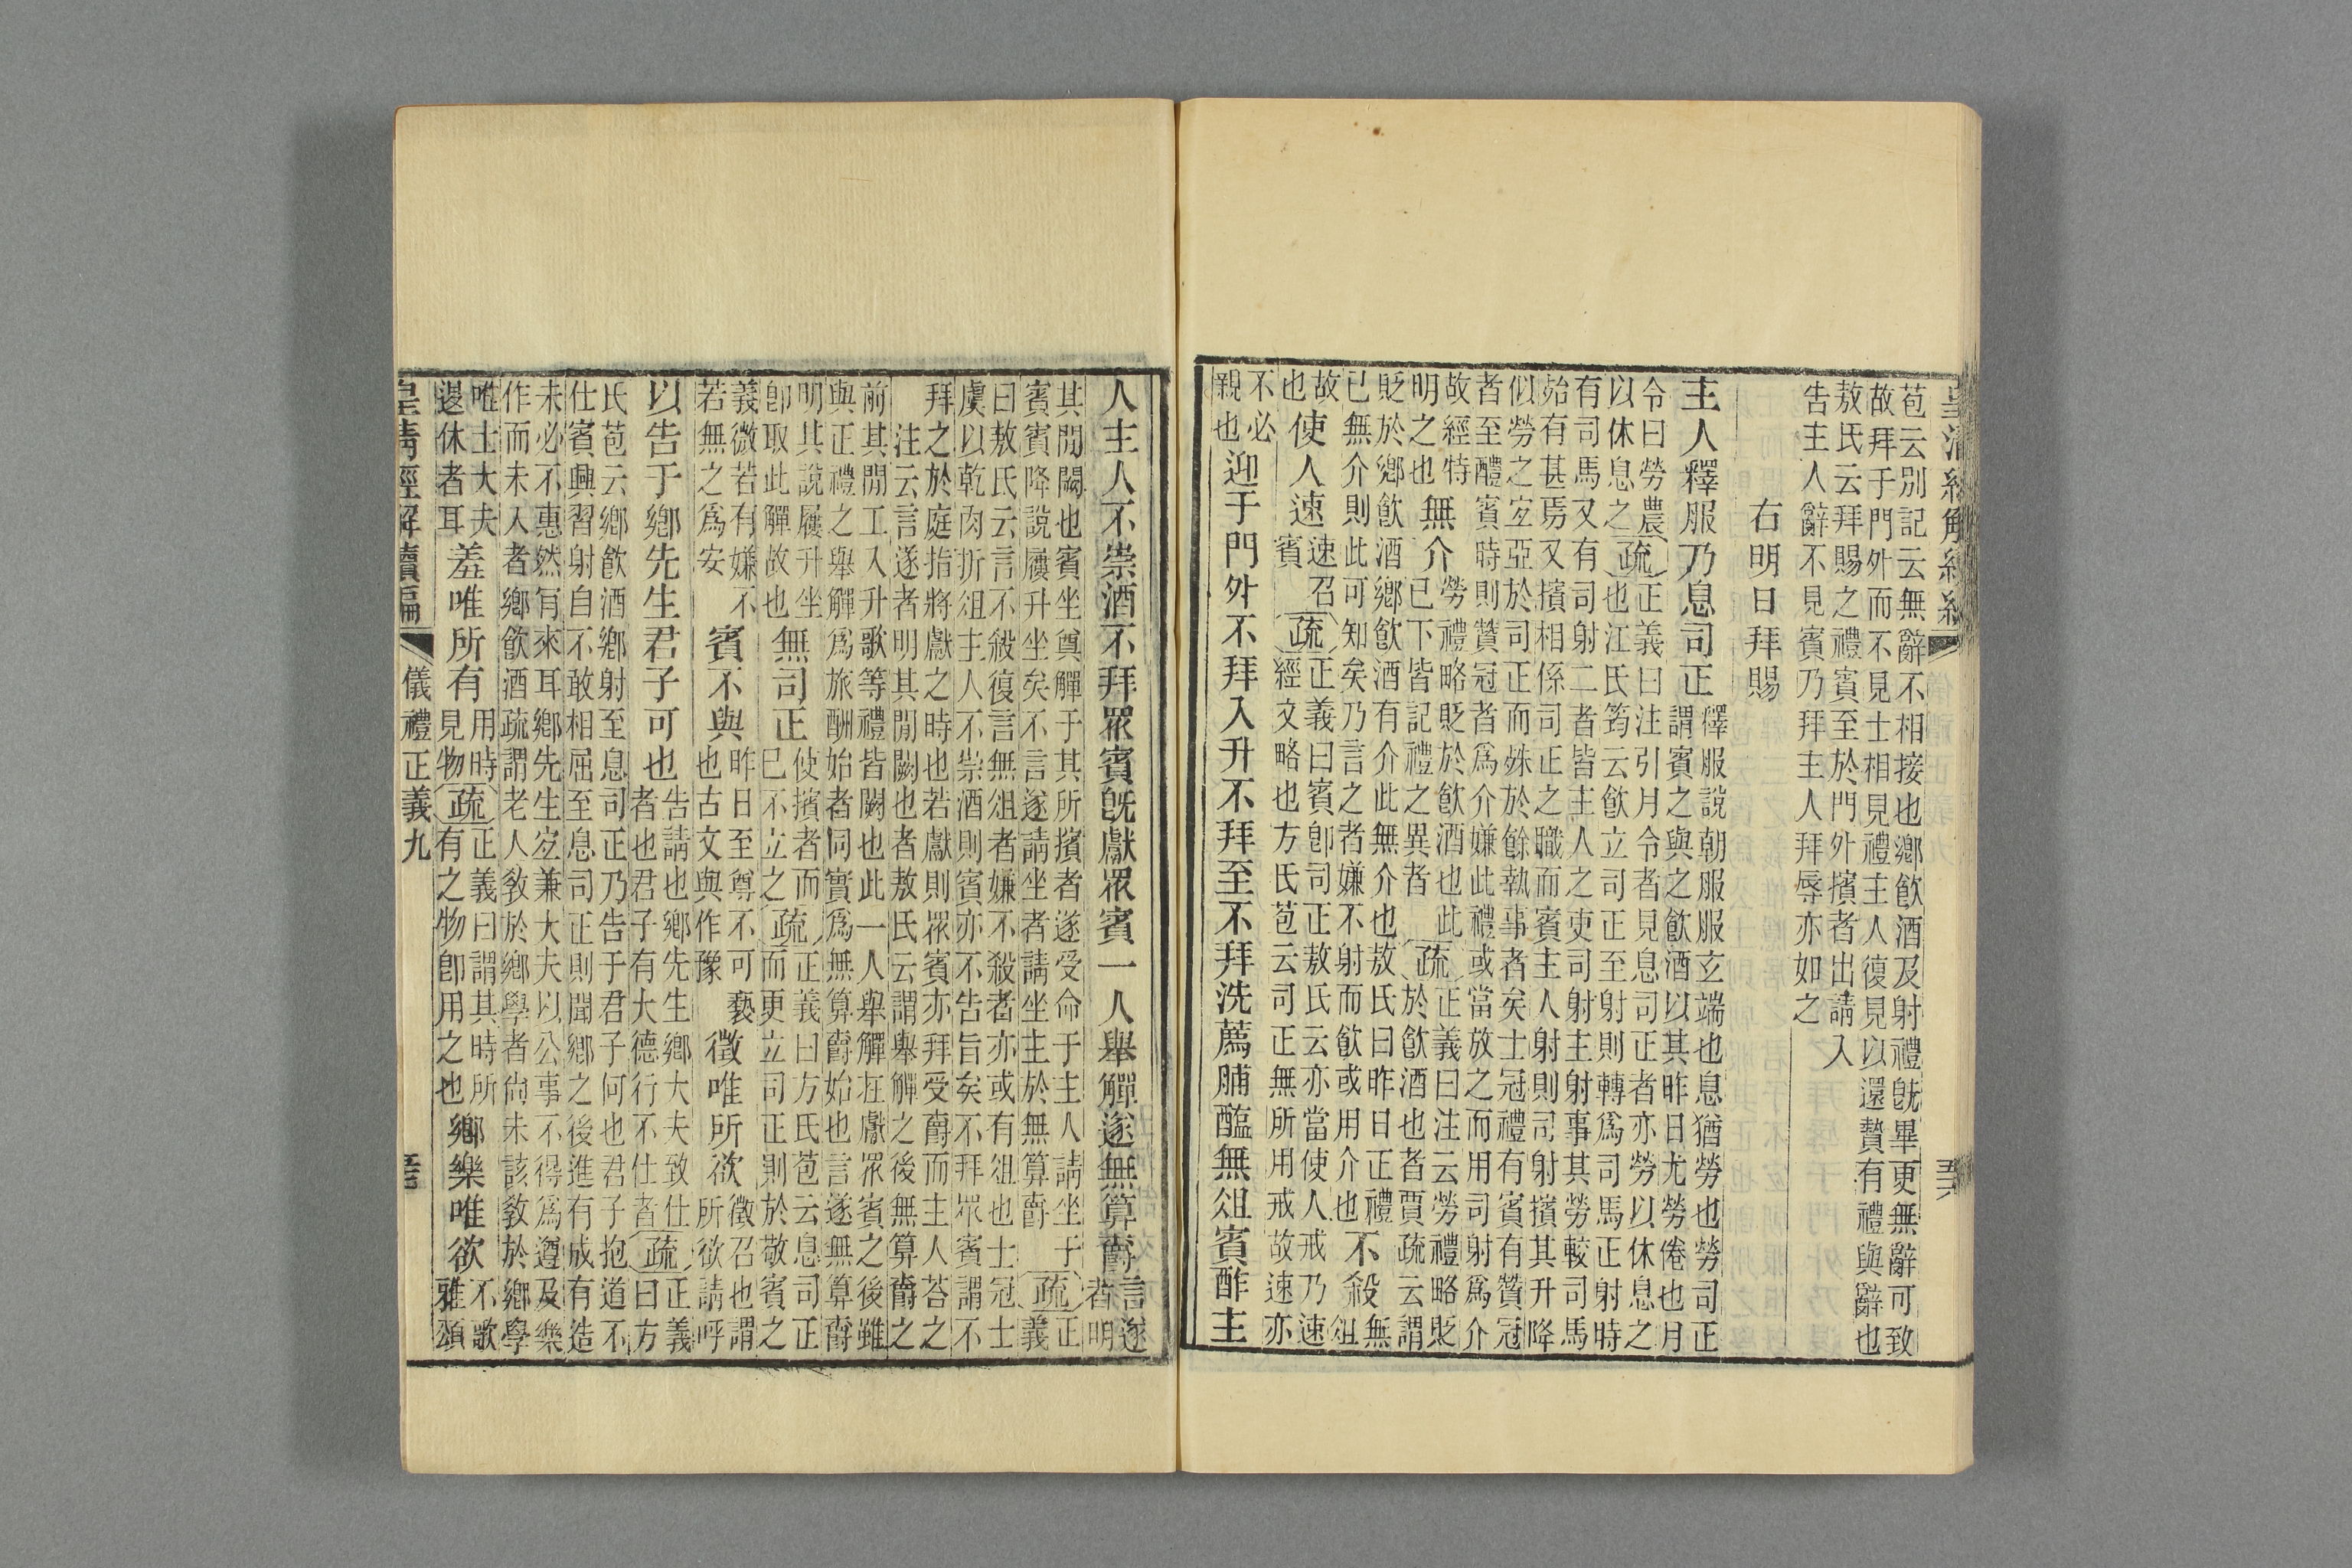 皇清經解續編
五六
苞云別記云無辭不相接也鄉飮酒及射禮旣畢更無辭可致
故拜于門外而不見士相見禮主人復見以還贄有禮與辭也
敖氏云拜賜之禮賓至於門外擯者出請入
告主人辭不見賓乃拜主人拜辱亦如之
右明日拜賜
主人釋服乃息司正
釋服說朝服服玄端也息猶勞也勞司正
謂賓之與之飮酒以其昨日尤勞倦也月
令曰勞農
以休息之
疏
正義曰注引月令者見息司正者亦勞以休息之
也江氏筠云飮立司正至射則轉爲司馬正射時
有司馬又有司射二者皆主人之吏司射主射事其勞較司馬
殆有甚焉又擯相係司正之職而賓主人射則司射擯其升降
似勞之宐亞於司正而姝於餘執事者矣士冠禮有賓有贊冠
者至醴賓時則贊冠者爲介嫌此禮或當放之而用司射爲介
故經特
明之也
無介
勞禮略貶於飮酒也此
已下皆記禮之異者
疏
正義曰注云勞禮略貶
於飮酒也者賈疏云謂
貶於鄉飮酒鄉飮酒有介此無介也敖氏曰昨日正禮
已無介則此可知矣乃言之者嫌不射而飮或用介也
不殺
無
俎
故
也
使人速
速召
賓
疏
正義曰賓卽司正敖氏云亦當使人戒乃速
經文略也方氏苞云司正無所用戒故速亦
不必
親也
迎于門外不拜入升不拜至不拜洗薦脯醢無俎賓酢主
人主人不崇酒不拜眾賓旣獻眾賓一人舉觶遂無算爵
言遂
者明
其閒闕也賓坐奠觶于其所擯者遂受命于主人請坐于
賓賓降說屨升坐矣不言遂請坐者請坐主於無算爵
疏
正
義
曰敖氏云言不殺復言無俎者嫌不殺者亦或有俎也士冠士
虞以乾肉折俎主人不崇酒則賓亦不告旨矣不拜眾賓謂不
拜之於庭指將獻之時也若獻則眾賓亦拜受爵而主人荅之
注云言遂者明其閒闕也者敖氏云謂舉觶之後無算爵之
前其閒工入升歌等禮皆闕也此一人舉觶在獻眾賓之後雖
與正禮之舉觶爲旅酬始者同實爲無算爵始也言遂無算爵
明其說屨升坐
卽取此觶故也
無司正
使擯者而
已不立之
疏
正義曰方氏苞云息司正
而更立司正則於敬賓之
義微若有嫌不
若無之爲安
賓不與
昨日至尊不可褻
也古文與作豫
徵唯所欲
徵召也謂
所欲請呼
以告于鄉先生君子可也
告請也鄉先生鄉大夫致仕
者也君子有大德行不仕者
疏
正義
曰方
氏苞云鄉飮酒鄉射至息司正乃告于君子何也君子抱道不
仕賓興習射自不敢相屈至息司正則聞鄉之後進有成有造
未必不惠然肯來耳鄉先生宐兼大夫以公事不得爲遵及樂
作而未入者鄉飮酒疏謂老人敎於鄉學者尙未該敎於鄉學
唯士大夫
退休者耳
羞唯所有
用時
見物
疏
正義曰謂其時所
有之物卽用之也
鄉樂唯欲
不歌
雅頌
皇清經解續編
儀禮正義九